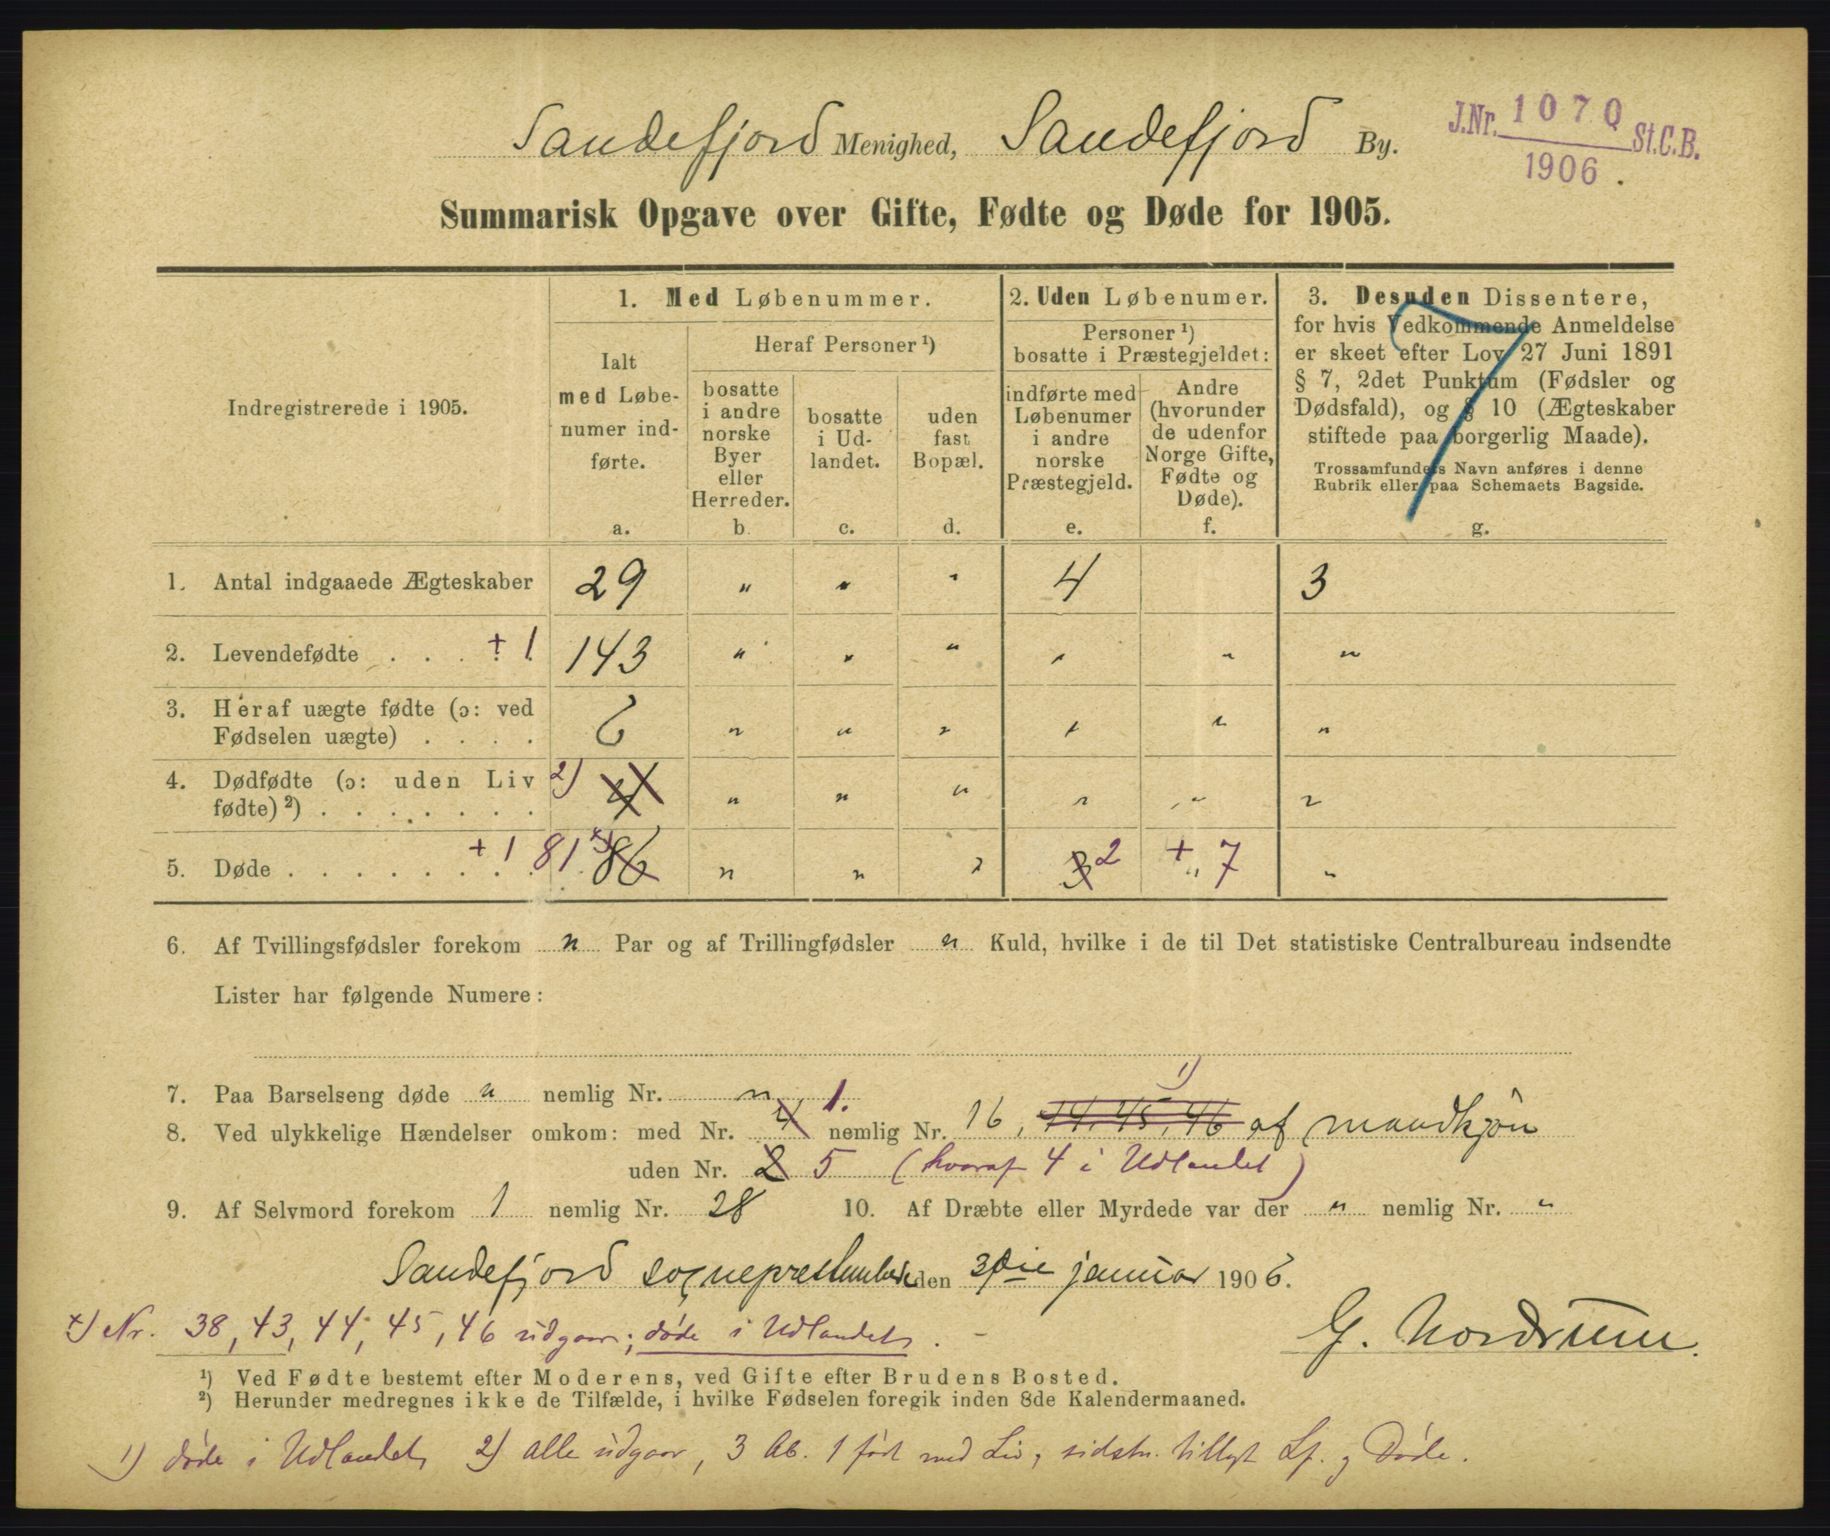 Sandefjord Menighed, Sandefjord By.
J.Nr. 1070 St.C.B.
1906.
Summarisk Opgave over Gifte, Fødte og Døde for 1905.
Indregistrerede i 1905.
1. Med Løbenummer.
Ialt
med Løbe-
numer ind-
førte.
a.
Heraf Personer ¹)
bosatte
i andre
norske
Byer
eller
Herreder.
b.
bosatte
i Ud-
landet.
c.
uden
fast
Bopæl.
d.
2. Uden Løbenumer.
Personer ¹)
bosatte i Præstegjeldet:
indførte med
Løbenumer
i andre
norske
Præstegjeld.
e.
Andre
(hvorunder
de udenfor
Norge Gifte,
Fødte og
Døde).
f.
3. Desuden Dissentere,
for hvis Vedkommende Anmeldelse
er skeet efter Lov 27 Juni 1891
§ 7, 2det Punktum (Fødsler og
Dødsfald), og § 10 (Ægteskaber
stiftede paa borgerlig Maade).
Trossamfundets Navn anføres i denne
Rubrik eller paa Schemaets Bagside.
g.
7
1. Antal indgaaede Ægteskaber 29 " " " 4 3
2. Levendefødte . . . . . + 1 143 " " " " " "
3. Heraf uægte fødte (ɔ: ved
Fødselen uægte) . . . . 6 " " " " " "
4. Dødfødte (ɔ: uden Liv
fødte) ²) . . . . . . . 2) 4 " " " " " "
5. Døde . . . . . . . + 1 81 x) 86 " " " 3 2 + " 7 "
6. Af Tvillingsfødsler forekom " Par og af Trillingfødsler " Kuld, hvilke i de til Det statistiske Centralbureau indsendte
Lister har følgende Numere:
7. Paa Barselseng døde " nemlig Nr. "
8. Ved ulykkelige Hændelser omkom: med Nr. 4 1. nemlig Nr. 16, 44, 45, 46 1) af mandkjøn
uden Nr. 2 5 (hvoraf 4 i Udlandet)
9. Af Selvmord forekom 1 nemlig Nr. 28 10. Af Dræbte eller Myrdede var der " nemlig Nr. "
Sandefjord sogneprestembede den januar 1906.
x) Nr. 38, 43, 44, 45, 46 udgaar; døde i Udlandet.
G. Nordrum.
¹) Ved Fødte bestemt efter Moderens, ved Gifte efter Brudens Bosted.
²) Herunder medregnes ikke de Tilfælde, i hvilke Fødselen foregik inden 8de Kalendermaaned.
1) døde i Udlandet 2) alle udgaar, 3 ab. 1 født med Liv, sidstn. tillagt Lf. og Døde.